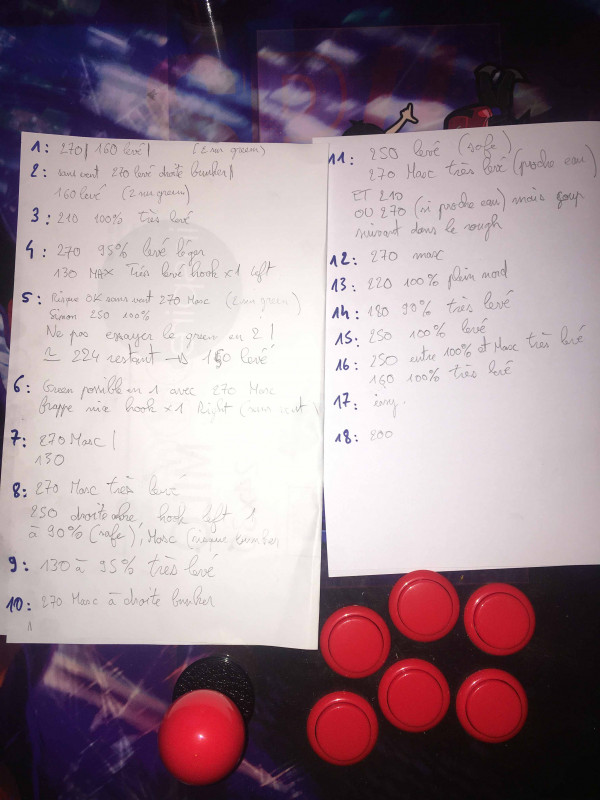 1: 270/ 160 levé/ (2 sur green)
2: sans vent 270 levé droite bunker/
160 levé (2 sur green)
3: 210 100% très levé
4: 270 95% levé léger
130 MAX très levé hook x1 left
5: Risque OK sans vent 270 Max (2 sur green)
Sinon 250 100%
Ne pas essayer le green en 2 !
≃ 224 restant → 160 levé
6: Green possible en 1 avec 270 Max
frappe mix hook x1 Right (sans vent)
7: 270 Max /
130
8: 270 Max très levé
250 droite hook left 1
à 90% (safe), Max (risque bunker
9: 130 à 95% très levé
10: 270 Max à droite bunker
11: 250 levé (safe)
270 Max très levé (proche eau)
ET 210
OU 270 (si proche eau) mais coup
suivant dans le rough
12: 270 max
13: 220 100% plein nord
14: 180 90% très levé
15: 250 100% levé
16: 250 entre 100% et Max très levé
160 100% très levé
17: easy.
18: 200